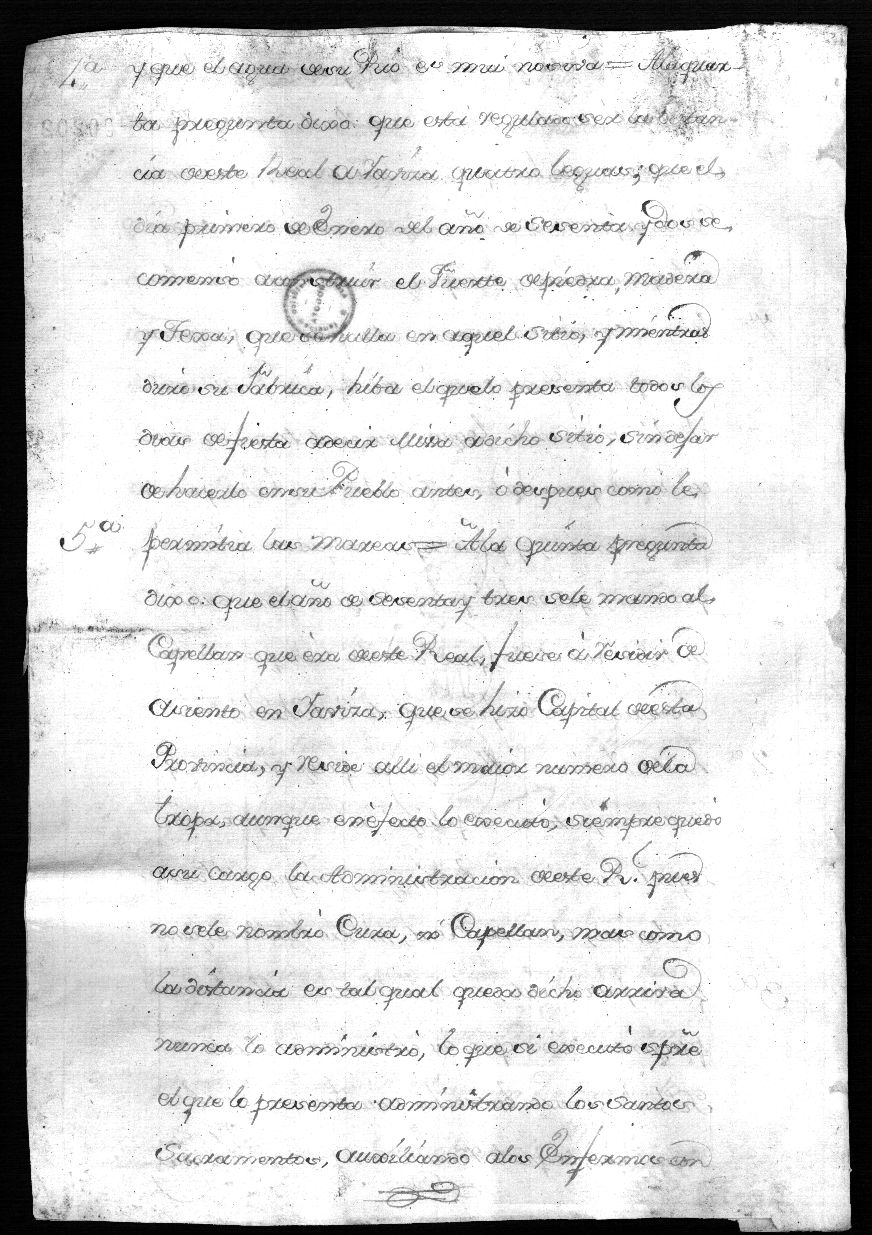 4.ª y que el agua de su Rio es mui nosiva = Ala quar-
ta pregunta dixo: que está regulado ser la distan-
cia de este Real a Yaviza quatro leguas; que el
dia primero de Enero del año de sesenta y dos se
comensó a construir el Fuerte de piedra, madera
y Texa, que se halla en aquel sitio, y mientras
duró su Fabrica, hiba el que lo presenta todos los
dias de fiesta a decir Missa a dicho sitio, sin dejar
de hacerlo en su Pueblo antes, ó despues como le
5.ª permitia las mareas = A la quinta pregunta
dixo: que el año de sesenta y tres se le mando al
Capellan que èra de este Real, fuese à residir de
asiento en Yaviza, que se hizo Capital de esta
Provincia, y reside alli el maior numero de la
tropa, aunque en èfecto lo executó, siempre quedò
a su cargo la Administracion de este R.l pues
no se le nombrò Cura, ni Capellan, mas como
la distancia es tal qual queda dicho arriva
nunca lo administrò, lo que si executó spre
el que lo presenta administrando los Santos
Sacramentos, auxiliando a los Enfermos con